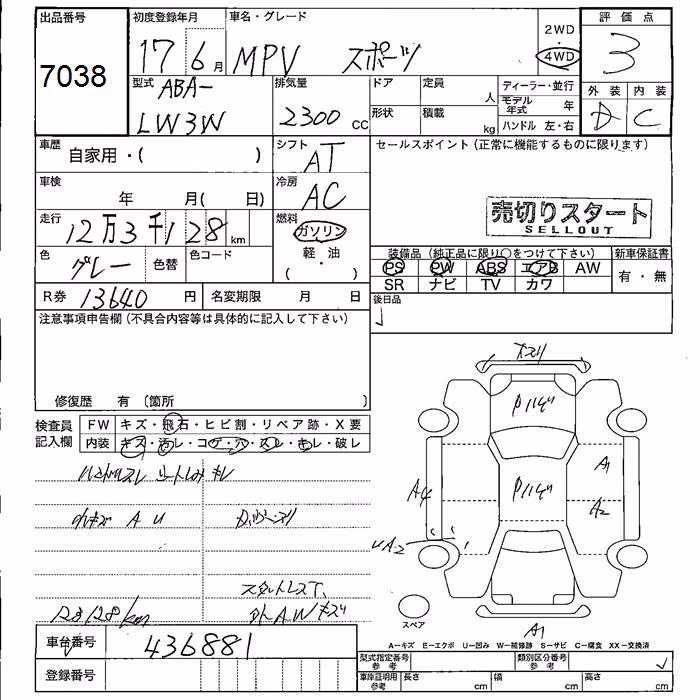 出品番号
7038
初度登録年月
17 6月
車名・グレード
MPV スポーツ
2WD
4WD
評価点
3
外装 内装
D C
型式
ABA-
LW3W
排気量
2300 CC
ドア 定員 人
形状 積載 kg
ディーラー・並行
モデル年式 年
ハンドル 左・右
車歴
自家用・( )
シフト
AT
セールスポイント (正常に機能するものに限ります)
車検
年 月( 日)
冷房
AC
売切りスタート
SELLOUT
走行
12万3千128km
燃料
ガソリン
軽・油
( )
色
グレー
色替
色コード
装備品 (純正品に限り○をつけて下さい)
PS PW ABS エアB AW
SR ナビ TV カワ
新車保証書
有・無
R券 13640円
名変期限 月 日
後日品
注意事項申告欄 (不具合内容等は具体的に記入して下さい)
修復歴 有 〔箇所 〕
検査員
記入欄
FW キズ・飛石・ヒビ割・リペア跡・X要
内装 キズ・汚レ・コゲ・穴・スレ・キレ・破レ
A U
A4
A1
A2
A1
スペア
A―キズ E―エクボ U―凹み W―補修跡 S―サビ C―腐食 XX―交換済
車台番号
436881
登録番号
型式指定番号
参考
類別区分番号
参考
車庫証明用
参考
長さ cm
幅 cm
高さ cm